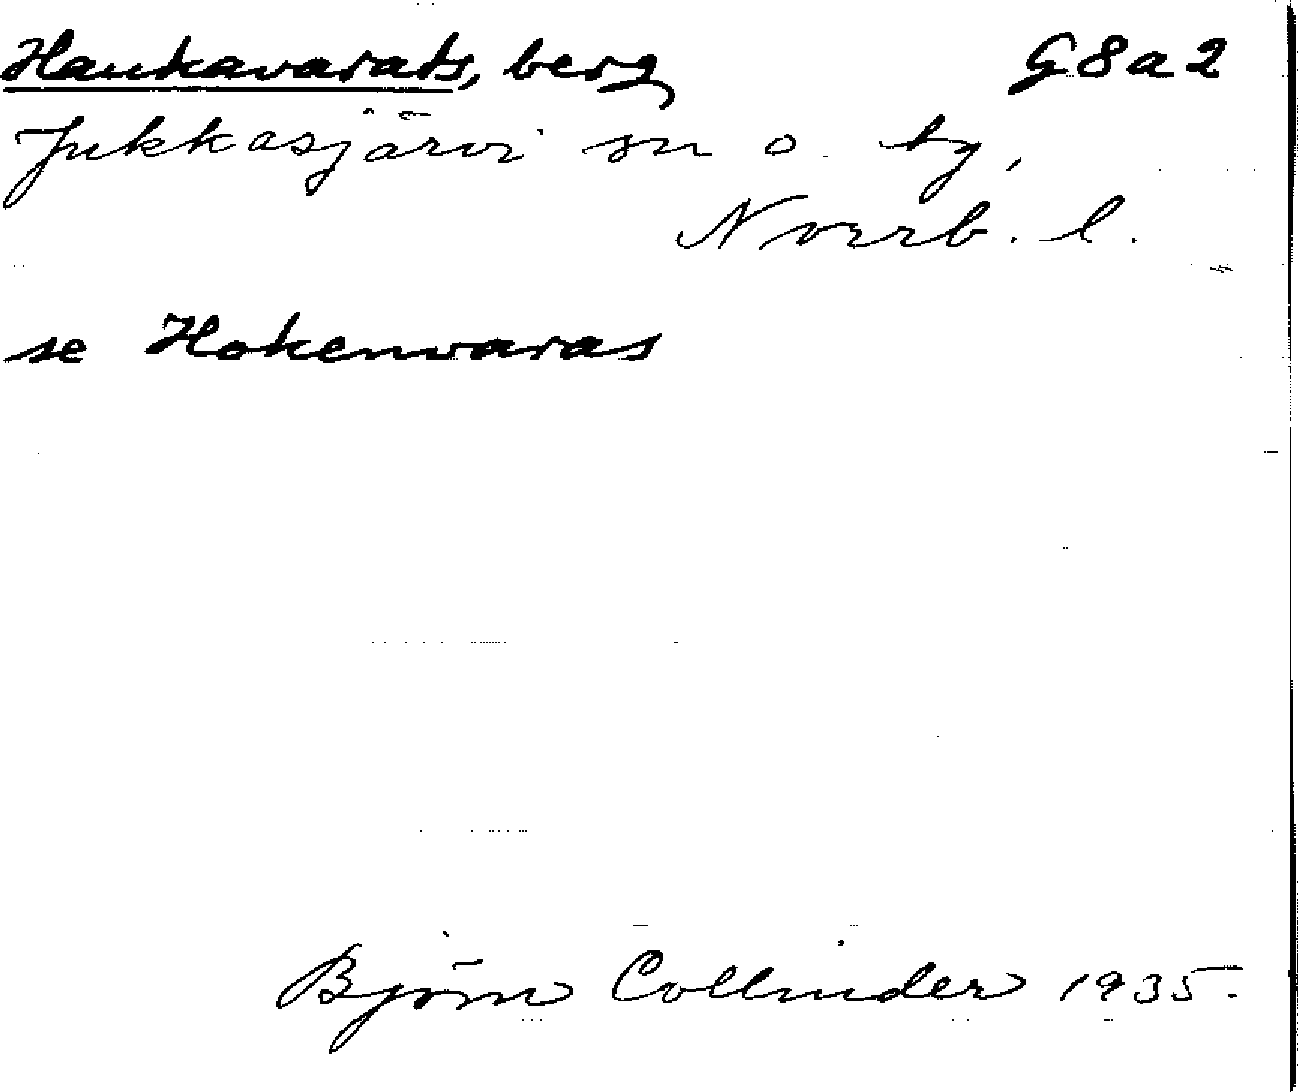 Haukavarats, berg G8a2
Jukkasjärvi sn o. by,
Norrb. l.
se Hokenvaras
Björn Collinder 1935.